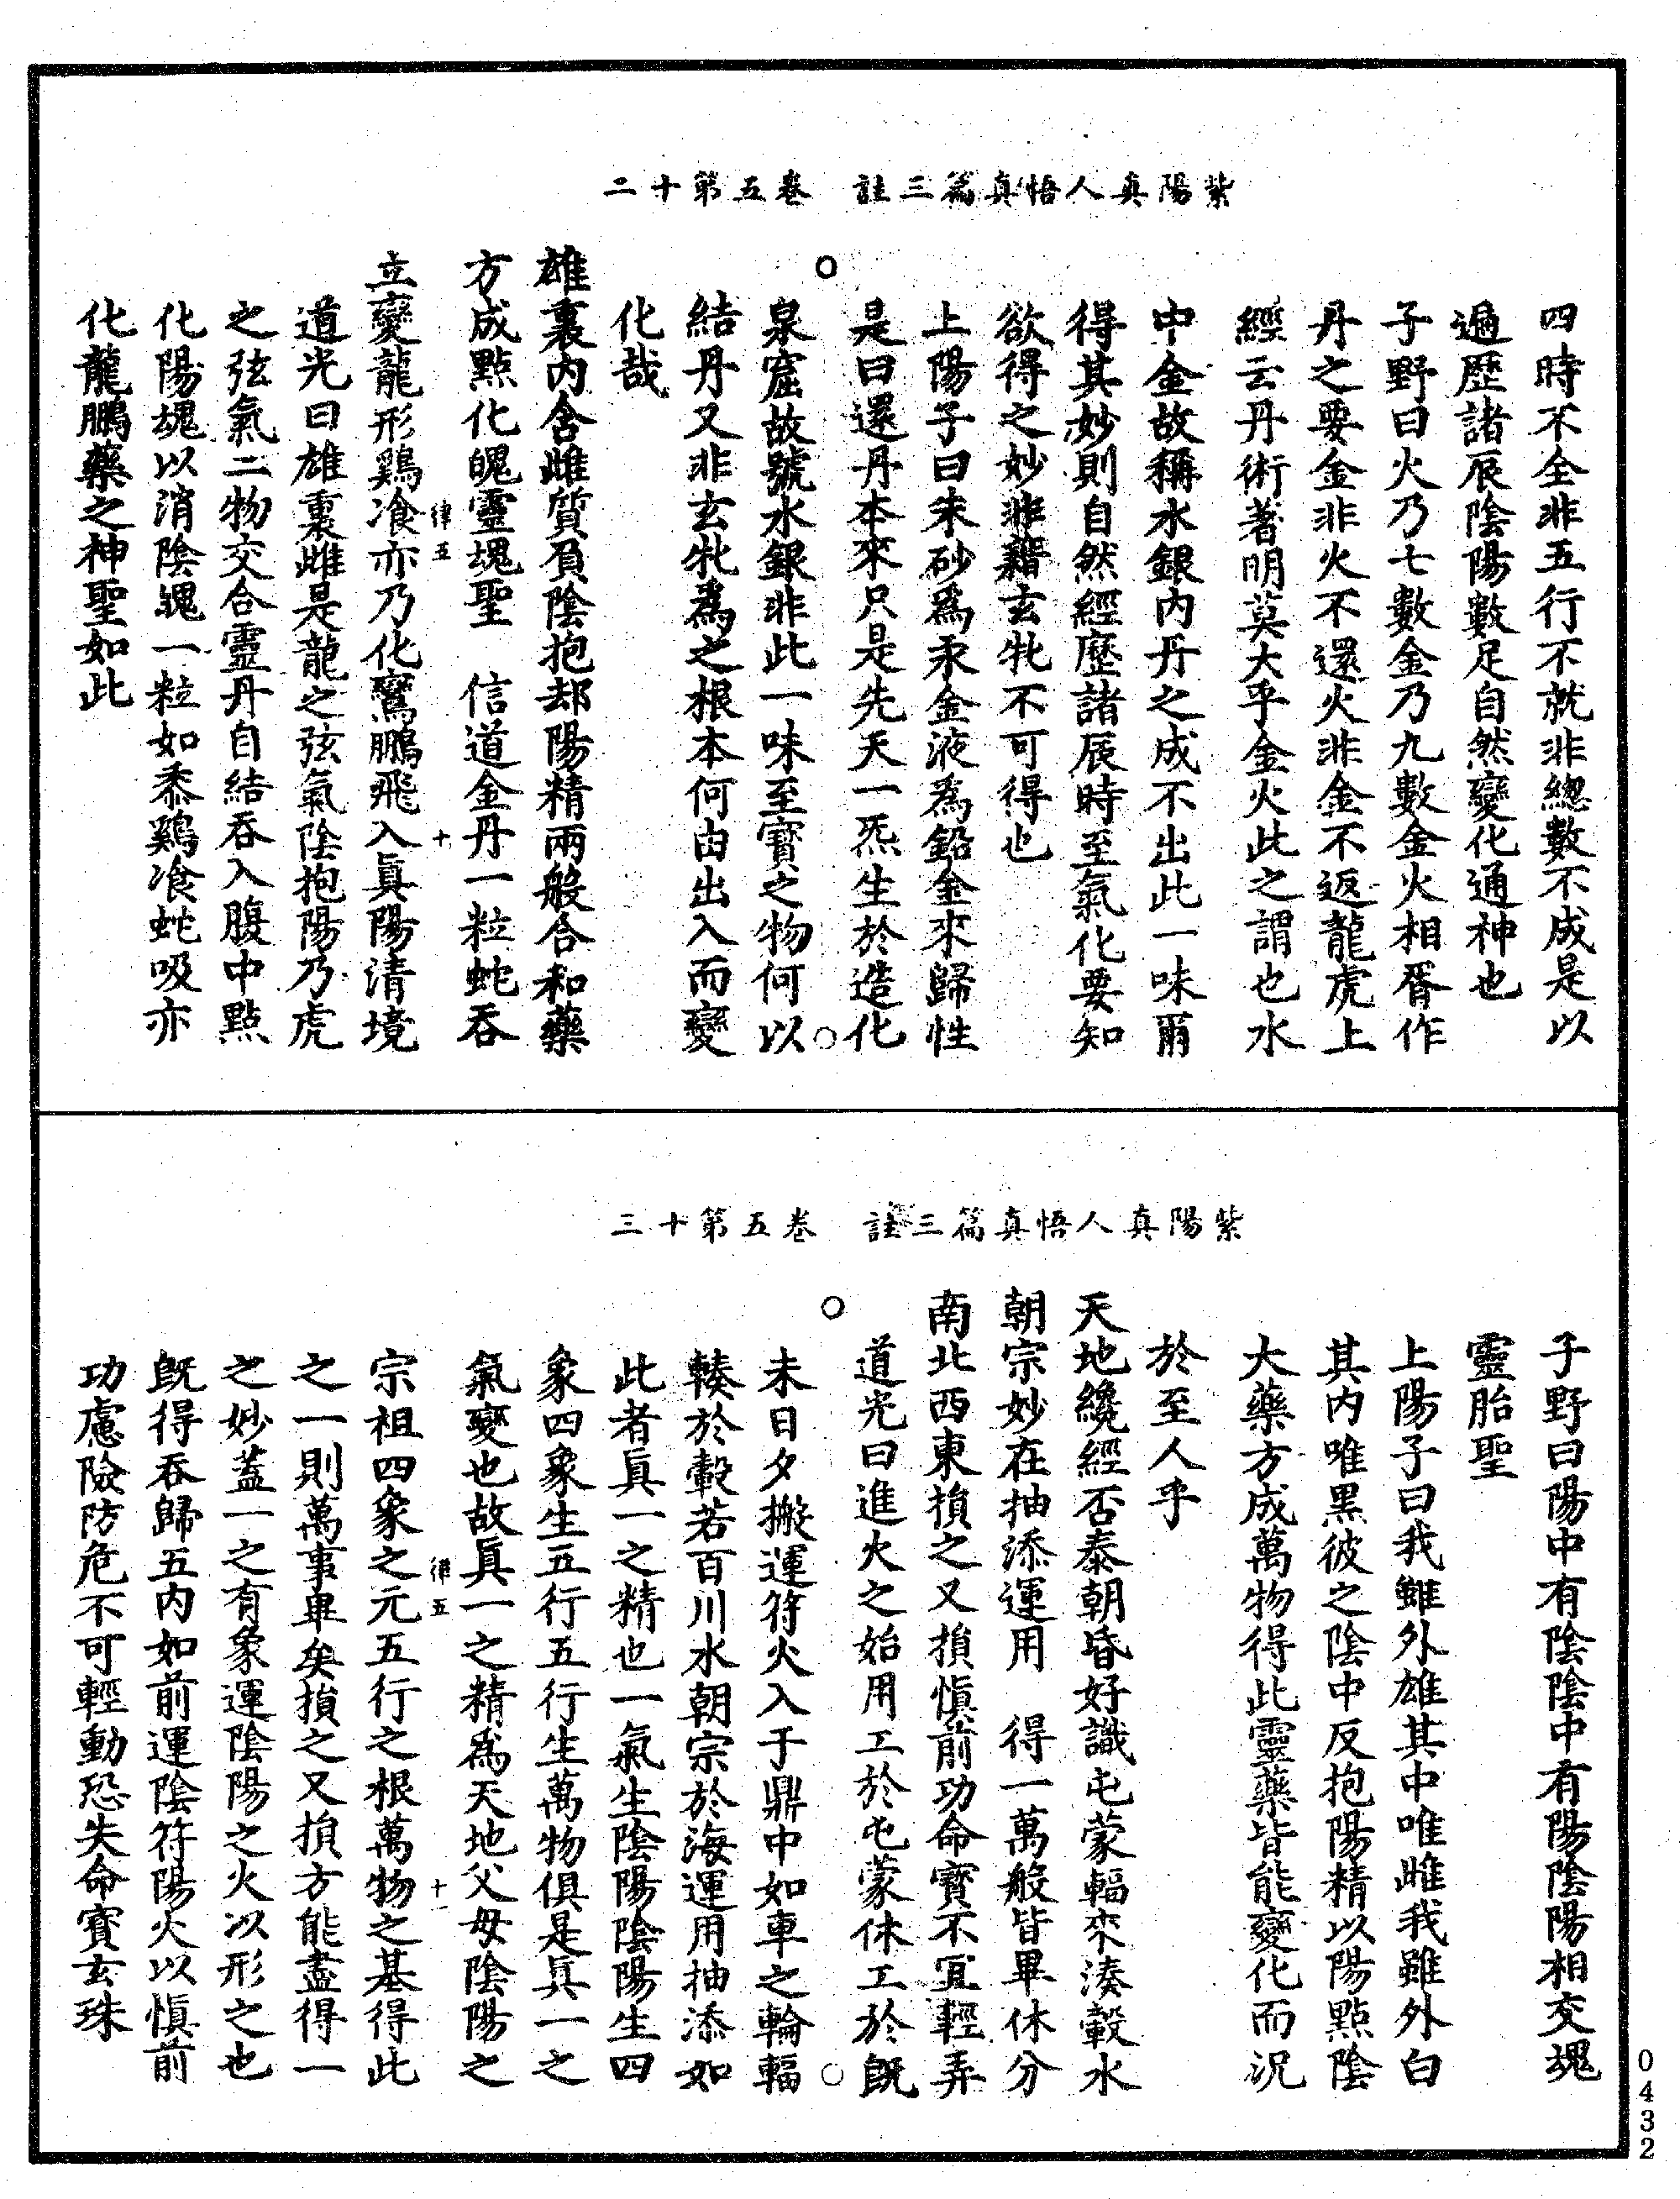 紫陽真人悟真篇三註　卷五第十二
四時不全非五行不就非緫數不成是以
遍歷諸辰陰陽數足自然變化通神也
子野曰火乃七數金乃九數金火相胥作
丹之要金非火不還火非金不返龍虎上
經云丹術著明莫大乎金火此之謂也水
中金故稱水銀內丹之成不出此一味爾
得其妙則自然經歷諸辰時至氣化要知
欲得之妙非藉玄牝不可得也
上陽子曰朱砂為汞金液為鉛金來歸性
是曰還丹本來只是先天一炁生於造化
泉窟故號水銀非此一味至寶之物何以
結丹又非玄牝為之根本何由出入而變
化哉
雄裏內含雌質負陰抱却陽精兩般合和藥
方成點化魄靈魂聖　信道金丹一粒蛇吞
律五　十
立變龍形鷄飡亦乃化鸞鵬飛入眞陽清境
道光曰雄裏雌是龍之弦氣陰抱陽乃虎
之弦氣二物交合靈丹自結吞入腹中點
化陽魂以消陰魄一粒如黍鷄飡蛇吸亦
化龍鵬藥之神聖如此
紫陽真人悟真篇三註　卷五第十三
子野曰陽中有陰陰中有陽陰陽相交魂
靈胎聖
上陽子曰我雖外雄其中唯雌我雖外白
其內唯黑彼之陰中反抱陽精以陽點陰
大藥方成萬物得此靈藥皆能變化而況
於至人乎
天地纔經否泰朝昏好識屯蒙輻來湊轂水
朝宗妙在抽添運用　得一萬般皆畢休分
南北西東損之又損慎前功命寶不宜輕弄
道光曰進火之始用工於屯蒙休工於旣
未日夕搬運符火入于鼎中如車之輪輻
輳於轂若百川水朝宗於海運用抽添如
此者眞一之精也一氣生陰陽陰陽生四
象四象生五行五行生萬物俱是眞一之
氣變也故眞一之精為天地父母陰陽之
律五　十一
宗祖四象之元五行之根萬物之基得此
之一則萬事畢矣損之又損方能盡得一
之妙蓋一之有象運陰陽之火以形之也
旣得吞歸五內如前運陰符陽火以慎前
功慮險防危不可輕動恐失命寶玄珠
0432